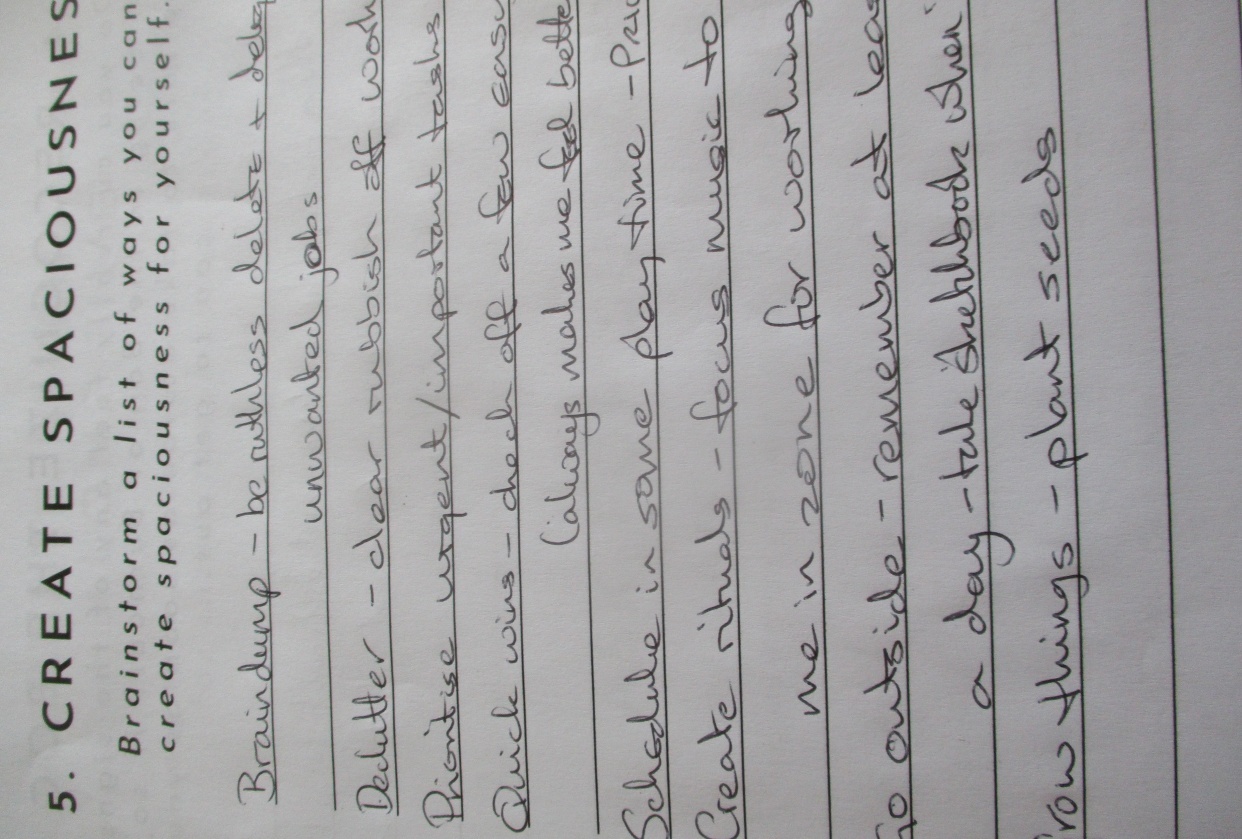 5. CREATE SPACIOUSNES
Brainstorm a list of ways you can
create spaciousness for yourself.
Braindump - be ruthless delete + deleg
unwanted jobs
Declutter - clear rubbish off work
Prioritise urgent/important tasks
Quick wins - check off a few easy
(always makes me feel bette
Schedule in some play time - Prio
Create rituals - focus music to
me in zone for working
Go outside - remember at leas
a day - take sketchbook when
Grow things - plant seeds